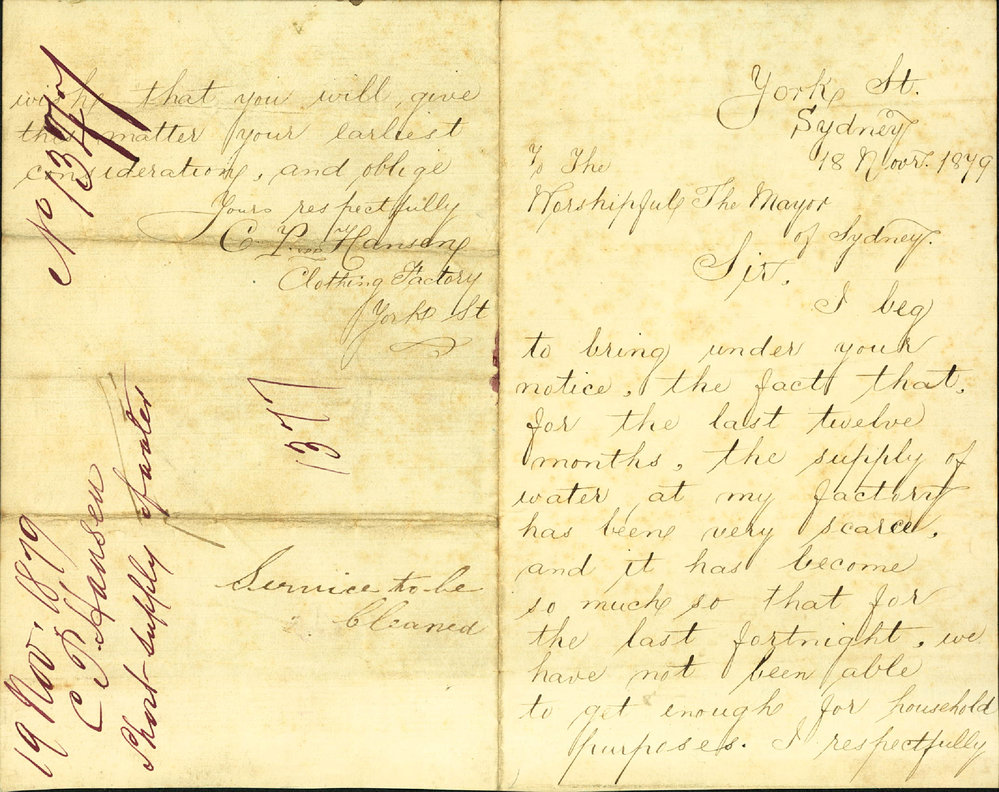 York St.
Sydney
18 Novr. 1879
To The
Worshipful The Mayor
of Sydney.
Sir,
I beg
to bring under your
notice, the fact that,
for the last twelve
months, the supply of
water at my factory
has been very scarce,
and it has become
so much so that for
the last fortnight, we
have not been able
to get enough for household
purposes. I respectfully
wish that you will give
this matter your earliest
consideration, and oblige
Yours respectfully
C. P. Hansen
Clothing Factory
York St
Service to be
Cleaned
137
No 1347
19 Nov. 1879
C P Hansen
Short supply of water